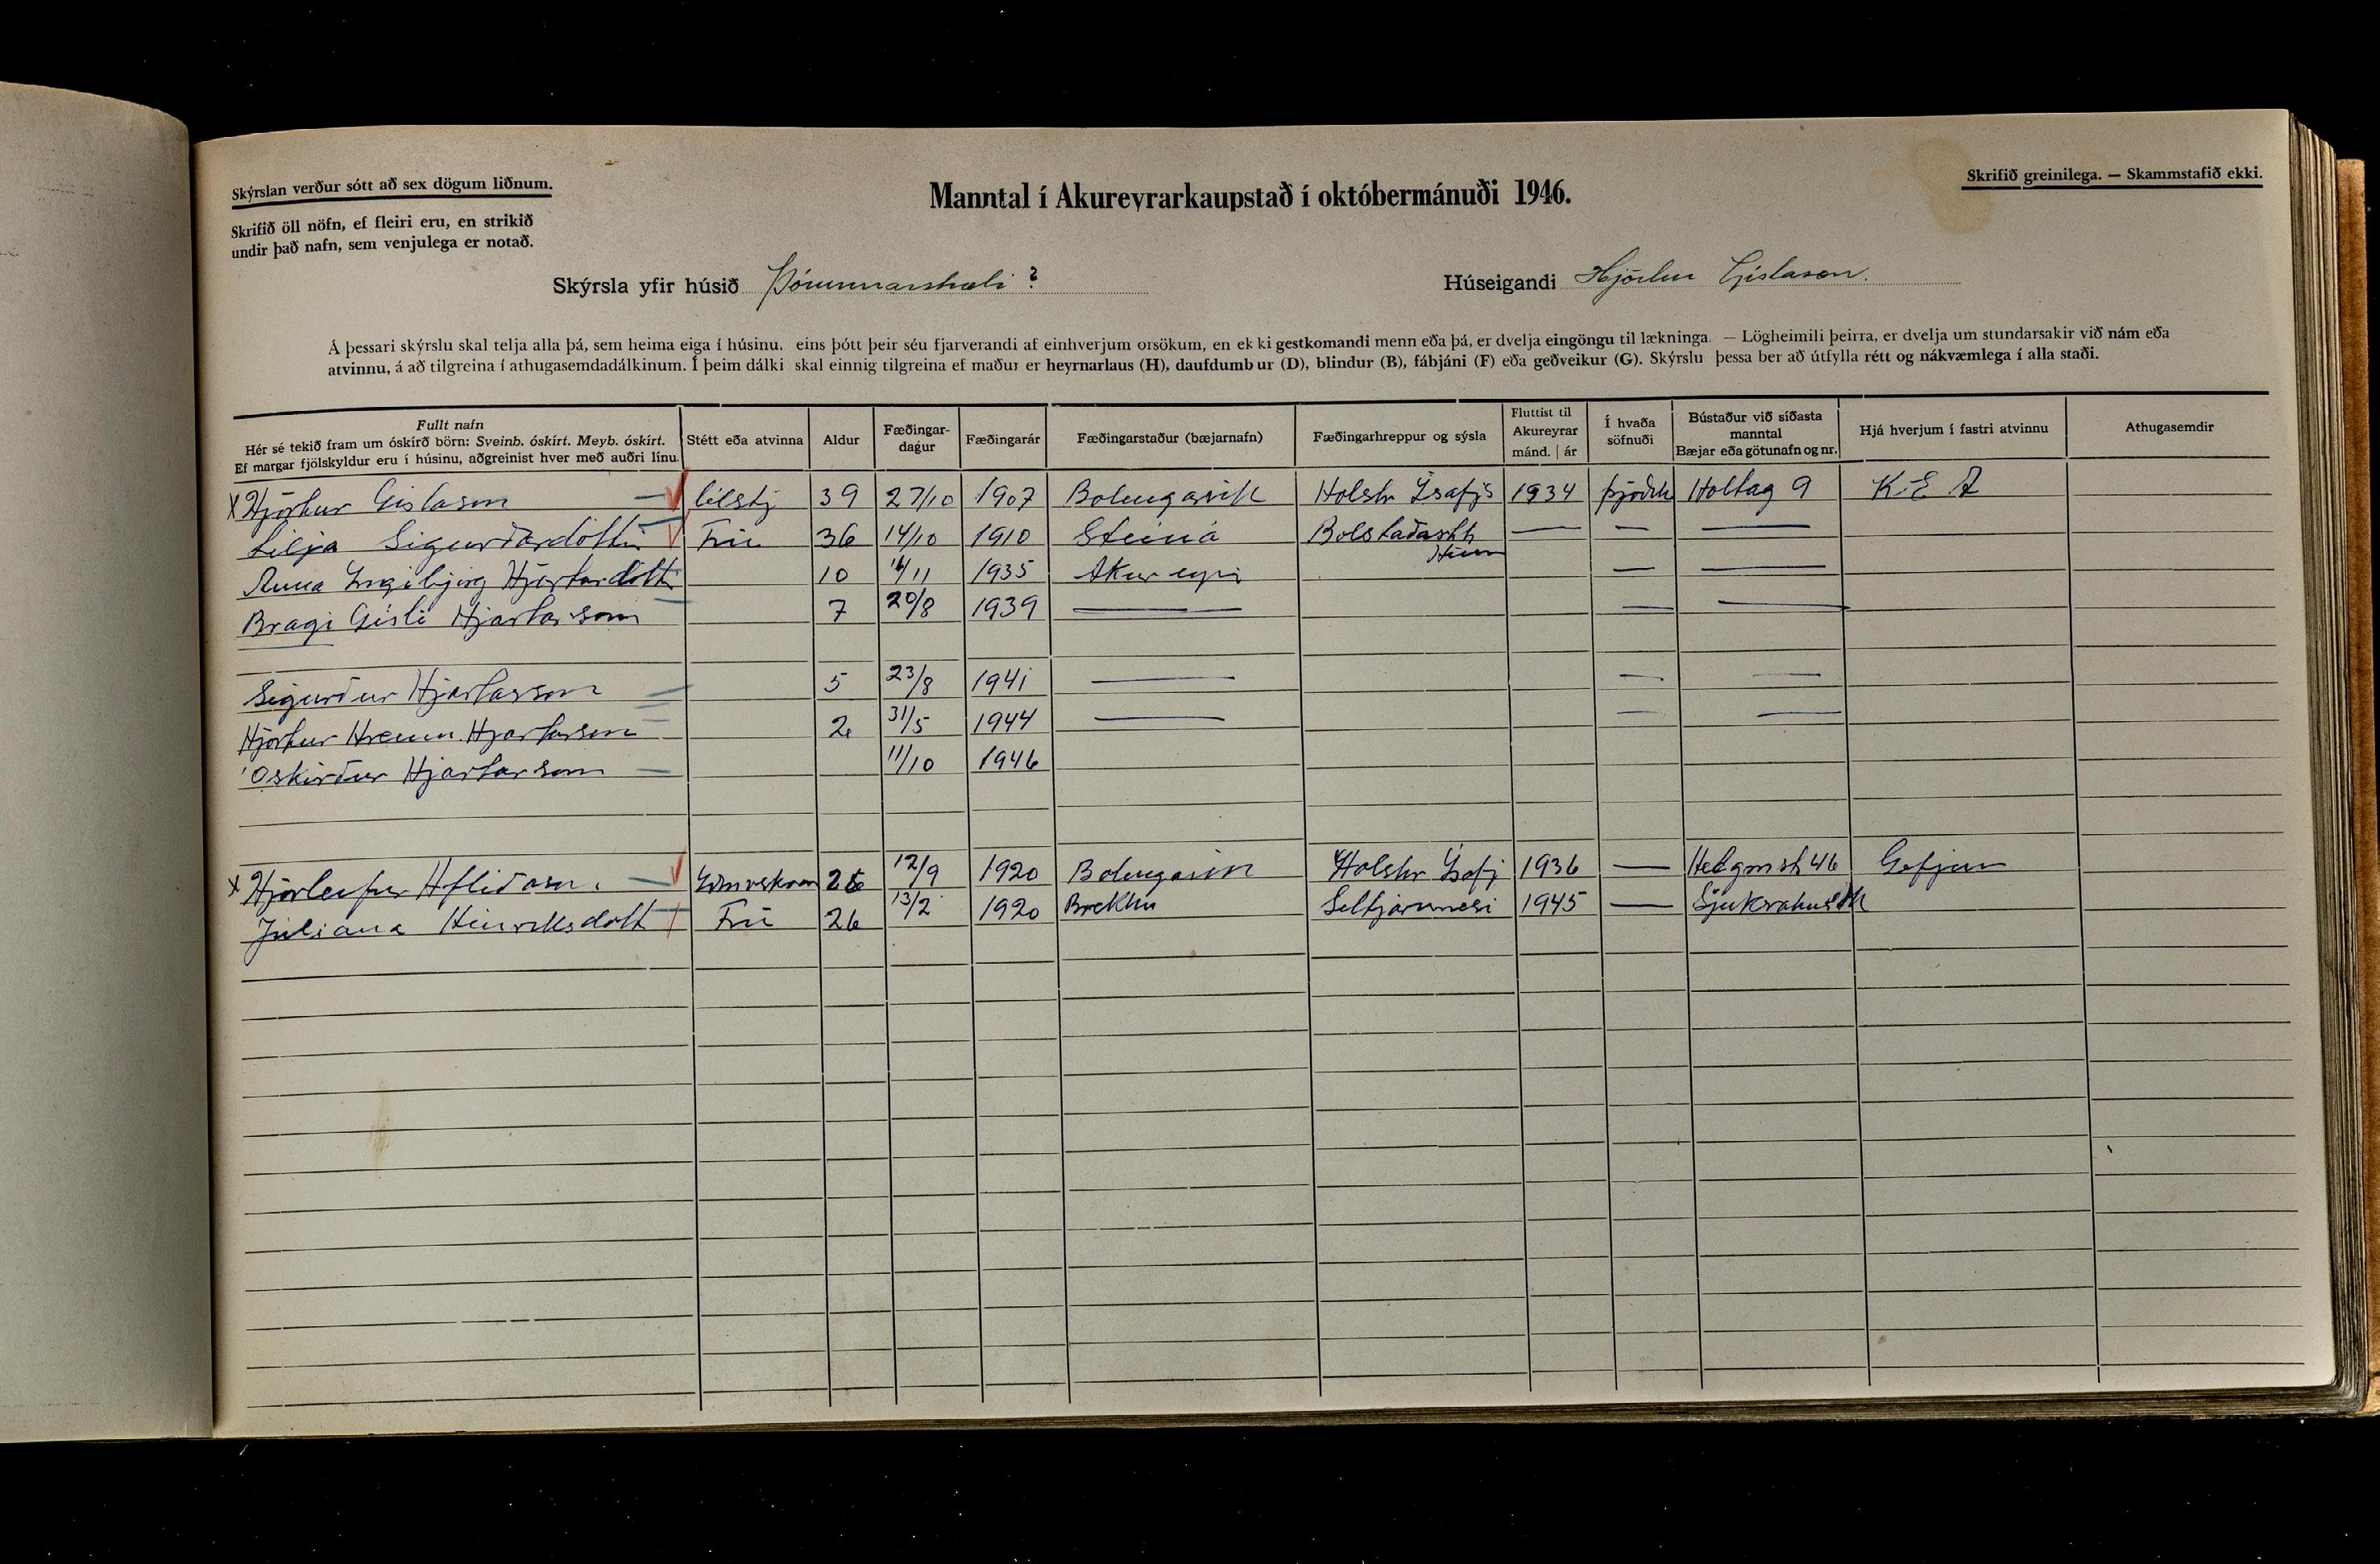 Skýrslan verður sótt að sex dögum liðnum.
Skrifið öll nöfn, ef fleiri eru, en strikið
undir það nafn, sem venjulega er notað.
Manntal í Akureyrarkaupstað í októbermánuði 1946.
Skrifið greinilega. — Skammstafið ekki.
Skýrsla yfir húsið
Húseigandi Hjörtur Gíslason.
Á þessari skýrslu skal telja alla þá, sem heima eiga í húsinu, eins þótt þeir séu fjarverandi af einhverjum orsökum, en ekki gestkomandi menn eða þá, er dvelja eingöngu til lækninga. — Lögheimili þeirra, er dvelja um stundarsakir við nám eða
atvinnu, á að tilgreina í athugasemdadálkinum. Í þeim dálki skal einnig tilgreina ef maður er heyrnarlaus (H), daufdumbur (D), blindur (B), fábjáni (F) eða geðveikur (G). Skýrslu þessa ber að útfylla rétt og nákvæmlega í alla staði.
Fullt nafn
Hér sé tekið fram um óskírð börn: Sveinb. óskírt. Meyb. óskírt.
Ef margar fjölskyldur eru í húsinu, aðgreinist hver með auðri línu.
Stétt eða atvinna
Aldur
Fæðingar-
dagur
Fæðingarár
Fæðingarstaður (bæjarnafn)
Fæðingarhreppur og sýsla
Fluttist til
Akureyrar
mánd. | ár
Í hvaða
söfnuði
Bústaður við síðasta
manntal
Bæjar eða götunafn og nr.
Hjá hverjum í fastri atvinnu
Athugasemdir
x Hjörtur Gíslason — bílstj 39 27/10 1907 Bolungavik Holshr Ísafjs 1934 þjóðk Holtag 9 K.E.A
Lilja Sigurðardóttir Frú 36 14/10 1910 Steiná Bolstaðarhh — — —
Hún
Anna Ingibjörg Hjartardótti 10 11 1935 Akureyri — —
Bragi Gísli Hjartarson 7 20/8 1939 — — —
Sigurður Hjartarson — 5 23/8 1941 — — —
Hjörtur Hreinn Hjartarson — 2 31/5 1944 — — —
Óskírður Hjartarson — 11/10 1946
x Hjörleifur Hafliðason. — 26 12/9 1920 Bolungavik Holshr Ísafj 1936 — 46 Gefjun
Júliana Hinriksdótt — Frú 26 13/2 1920 Brekku Seltjarnnesi 1945 —